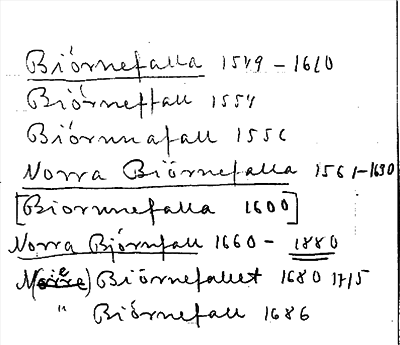 Biörnefalla 1549 - 1610
Biörneffall 1554
Biörnnafall 1556
Norra Biörnefalla 1561-1630
[Biornnefalla 1600]
Norra Bjórnfall 1660 - 1880
Biörnefallet 1680 1715
" Biörnefall 1686